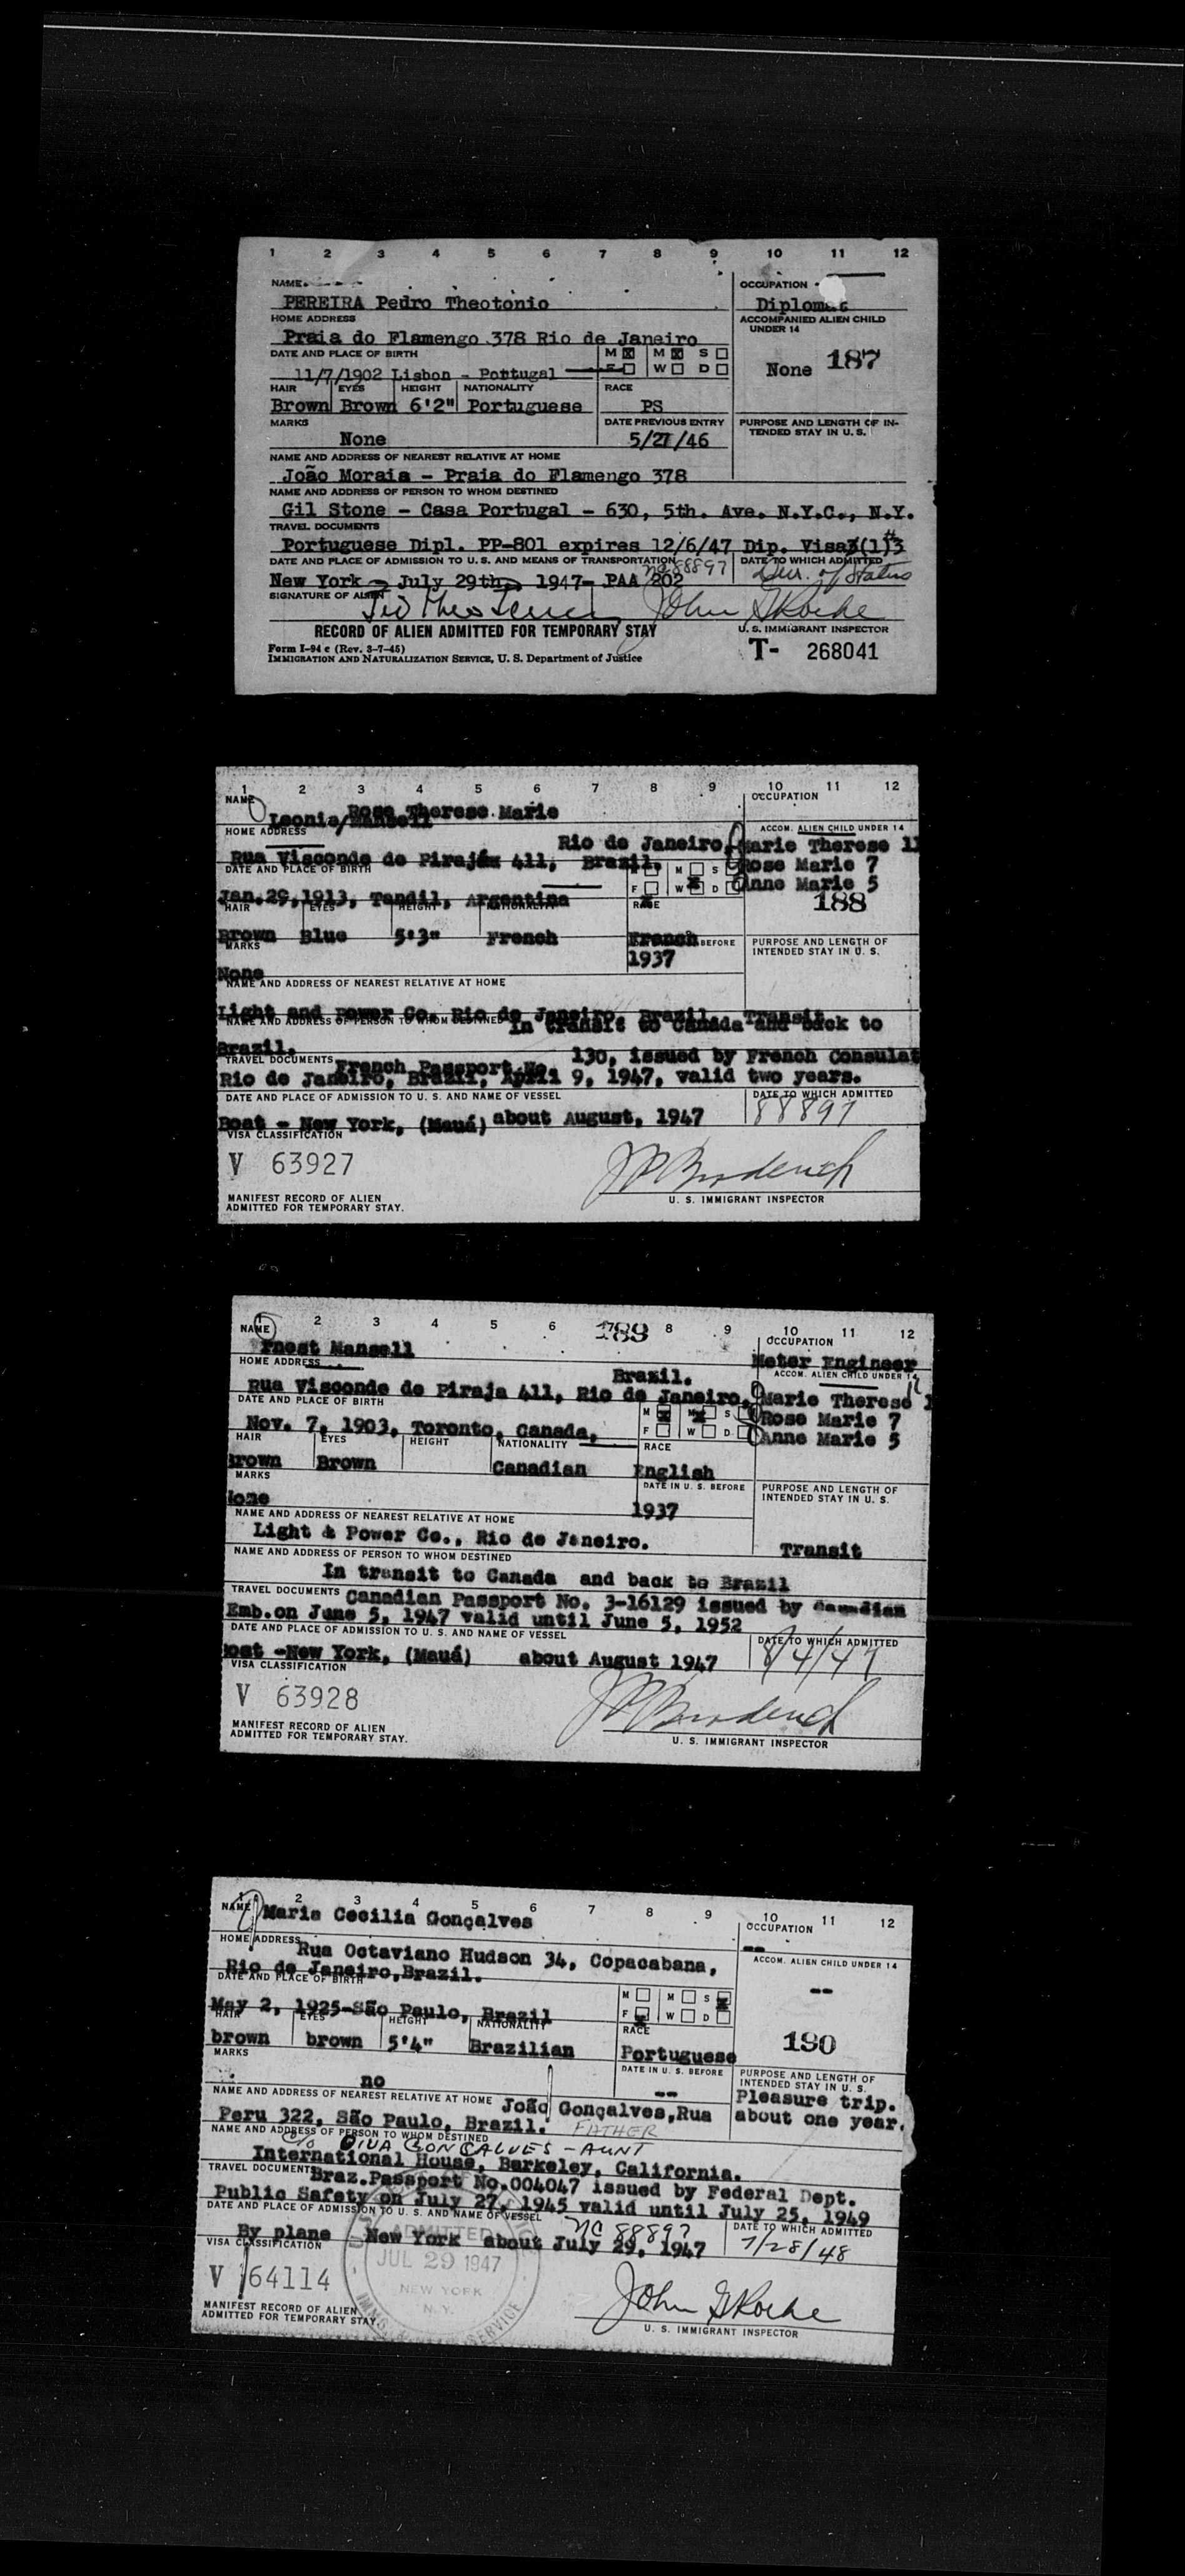 1 2 3 4 5 6 7 8 9 10 11 12
NAME OCCUPATION
PEREIRA Pedro Theotonio Diplomat
HOME ADDRESS ACCOMPANIED ALIEN CHILD UNDER 14
Praia do Flamengo 378 Rio de Janeiro
DATE AND PLACE OF BIRTH M M S
11/7/1902 Lisbon - Pottugal F W D None 187
HAIR EYES HEIGHT NATIONALITY RACE
Brown Brown 6'2" Portuguese PS
MARKS DATE PREVIOUS ENTRY PURPOSE AND LENGTH OF INTENDED STAY IN U. S.
None 5/21/46
NAME AND ADDRESS OF NEAREST RELATIVE AT HOME
João Morais - Praia do Flamengo 378
NAME AND ADDRESS OF PERSON TO WHOM DESTINED
Gil Stone - Casa Portugal - 630, 5th. Ave. N.Y.C., N.Y.
TRAVEL DOCUMENTS
Portuguese Dipl. PP-801 expires 12/6/47 Dip. Visa 3(1)
DATE AND PLACE OF ADMISSION TO U. S. AND MEANS OF TRANSPORTATION DATE TO WHICH ADMITTED
NC88897 Dur. of Status
New York - July 29th, 1947- PAA 202
SIGNATURE OF ALIEN
John G Roche
RECORD OF ALIEN ADMITTED FOR TEMPORARY STAY U. S. IMMIGRANT INSPECTOR
Form I-94 c (Rev. 3-7-45)
IMMIGRATION AND NATURALIZATION SERVICE, U. S. Department of Justice T- 268041
1 2 3 4 5 6 7 8 9 10 11 12
NAME OCCUPATION
Leonia/Mansell Rose Therese Marie
HOME ADDRESS ACCOM. ALIEN CHILD UNDER 14
Rio de Janeiro, Marie Therese 11
Rua Visconde de Pirajá 411, Brazil. Rose Marie 7
DATE AND PLACE OF BIRTH M M S
F W D Anne Marie 5
Jan.29,1913, Tandil, Argentina 188
HAIR EYES HEIGHT NATIONALITY RACE
Brown Blue 5'3" French French
MARKS BEFORE PURPOSE AND LENGTH OF INTENDED STAY IN U. S.
None 1937
NAME AND ADDRESS OF NEAREST RELATIVE AT HOME
Light and Power Co. Rio de Janeiro, Brazil. Transit
NAME AND ADDRESS OF PERSON TO WHOM DESTINED In transit to Canada and back to
Brazil.
TRAVEL DOCUMENTS French Passport No. 130, issued by French Consulat
Rio de Janeiro, Brazil, April 9, 1947, valid two years.
DATE AND PLACE OF ADMISSION TO U. S. AND NAME OF VESSEL DATE TO WHICH ADMITTED
Boat - New York, (Mauá) about August, 1947 88897
VISA CLASSIFICATION
V 63927
J P Broderick
MANIFEST RECORD OF ALIEN ADMITTED FOR TEMPORARY STAY. U. S. IMMIGRANT INSPECTOR
1 2 3 4 5 6 189 8 9 10 11 12
NAME OCCUPATION
Ernest Mansell Meter Engineer
HOME ADDRESS ACCOM. ALIEN CHILD UNDER 14
Brazil.
Rua Visconde de Piraja 411, Rio de Janeiro, Marie Therese 11
DATE AND PLACE OF BIRTH M M S Rose Marie 7
Nov. 7, 1903, Toronto, Canada, F W D Anne Marie 5
HAIR EYES HEIGHT NATIONALITY RACE
Brown Brown Canadian English
MARKS DATE IN U. S. BEFORE PURPOSE AND LENGTH OF INTENDED STAY IN U. S.
None 1937
NAME AND ADDRESS OF NEAREST RELATIVE AT HOME
Light & Power Co., Rio de Janeiro. Transit
NAME AND ADDRESS OF PERSON TO WHOM DESTINED
In transit to Canada and back to Brazil
TRAVEL DOCUMENTS Canadian Passport No. 3-16129 issued by Canadian
Emb.on June 5, 1947 valid until June 5, 1952
DATE AND PLACE OF ADMISSION TO U. S. AND NAME OF VESSEL DATE TO WHICH ADMITTED
Boat -New York, (Mauá) about August 1947 8/4/47
VISA CLASSIFICATION
V 63928
J P Broderick
MANIFEST RECORD OF ALIEN ADMITTED FOR TEMPORARY STAY. U. S. IMMIGRANT INSPECTOR
1 2 3 4 5 6 7 8 9 10 11 12
NAME Maria Cecilia Gonçalves OCCUPATION
HOME ADDRESS --
Rua Octaviano Hudson 34, Copacabana, ACCOM. ALIEN CHILD UNDER 14
Rio de Janeiro,Brazil. --
DATE AND PLACE OF BIRTH M M S
May 2, 1925-São Paulo, Brazil F W D
HAIR EYES HEIGHT NATIONALITY RACE 190
brown brown 5'4" Brazilian Portuguese
MARKS DATE IN U. S. BEFORE PURPOSE AND LENGTH OF INTENDED STAY IN U. S.
no -- Pleasure trip.
NAME AND ADDRESS OF NEAREST RELATIVE AT HOME João Gonçalves,Rua about one year.
Peru 322, São Paulo, Brazil. FATHER
NAME AND ADDRESS OF PERSON TO WHOM DESTINED
c/o DIVA GONCALVES - AUNT
International House, Barkeley, California.
TRAVEL DOCUMENTS Braz.Passport No.004047 issued by Federal Dept.
Public Safety on July 27, 1945 valid until July 25, 1949
DATE AND PLACE OF ADMISSION TO U. S. AND NAME OF VESSEL NC 88897 DATE TO WHICH ADMITTED
By plane - New York about July 29, 1947 7/28/48
VISA CLASSIFICATION
ADMITTED
JUL 29 1947
NEW YORK
N. Y.
V 64114
John G Roche
MANIFEST RECORD OF ALIEN ADMITTED FOR TEMPORARY STAY. U. S. IMMIGRANT INSPECTOR